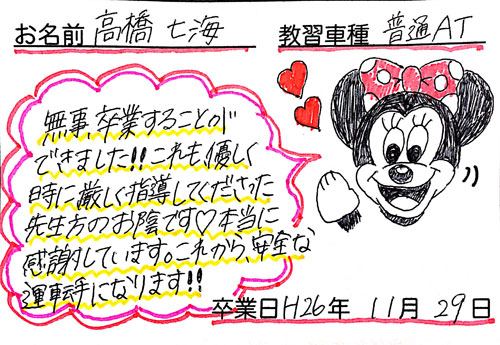 お名前 高橋 七海
教習車種 普通AT
無事、卒業することが
できました!!これも、優しく
時に厳しく指導してくださった
先生方のお陰です♡本当に
感謝しています。これから、安全な
運転手になります!!
卒業日H26年 11月 29日